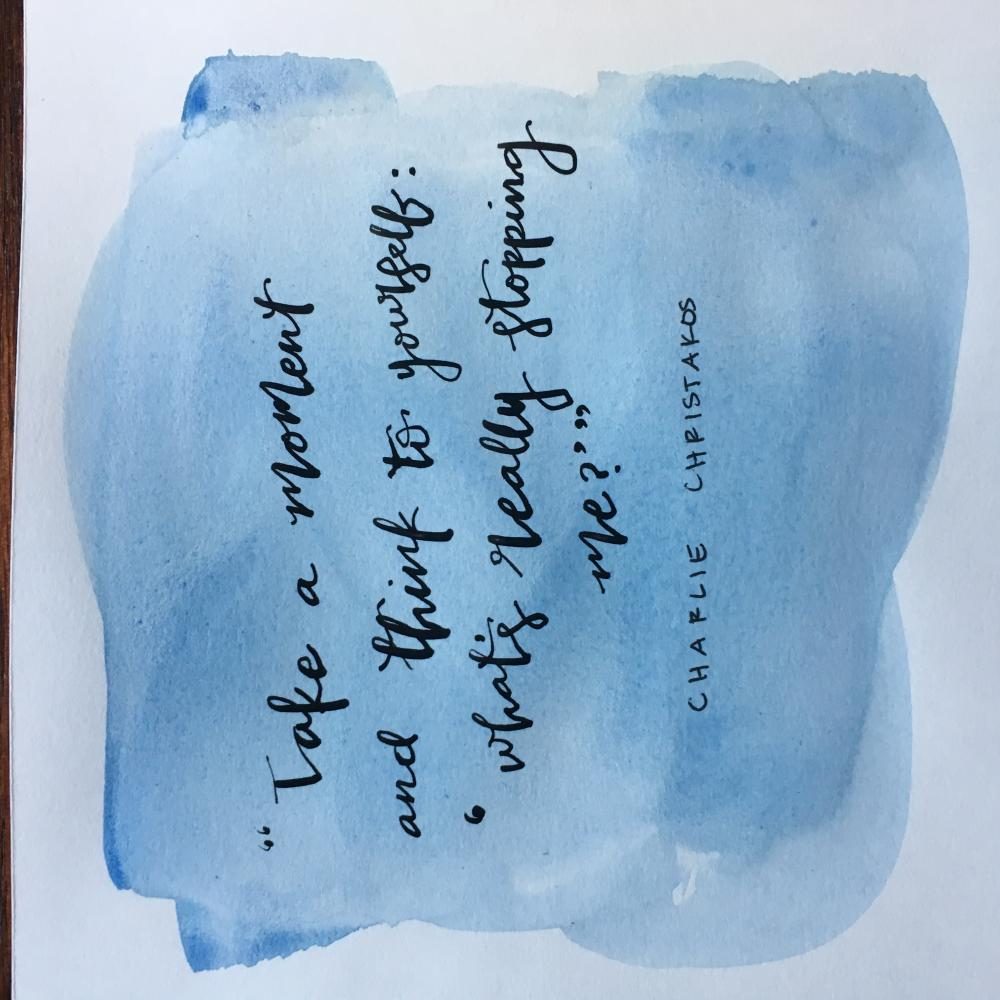 “Take a moment
and think to yourself:
‘what's really stopping
me?’”
CHARLIE CHRISTAKOS